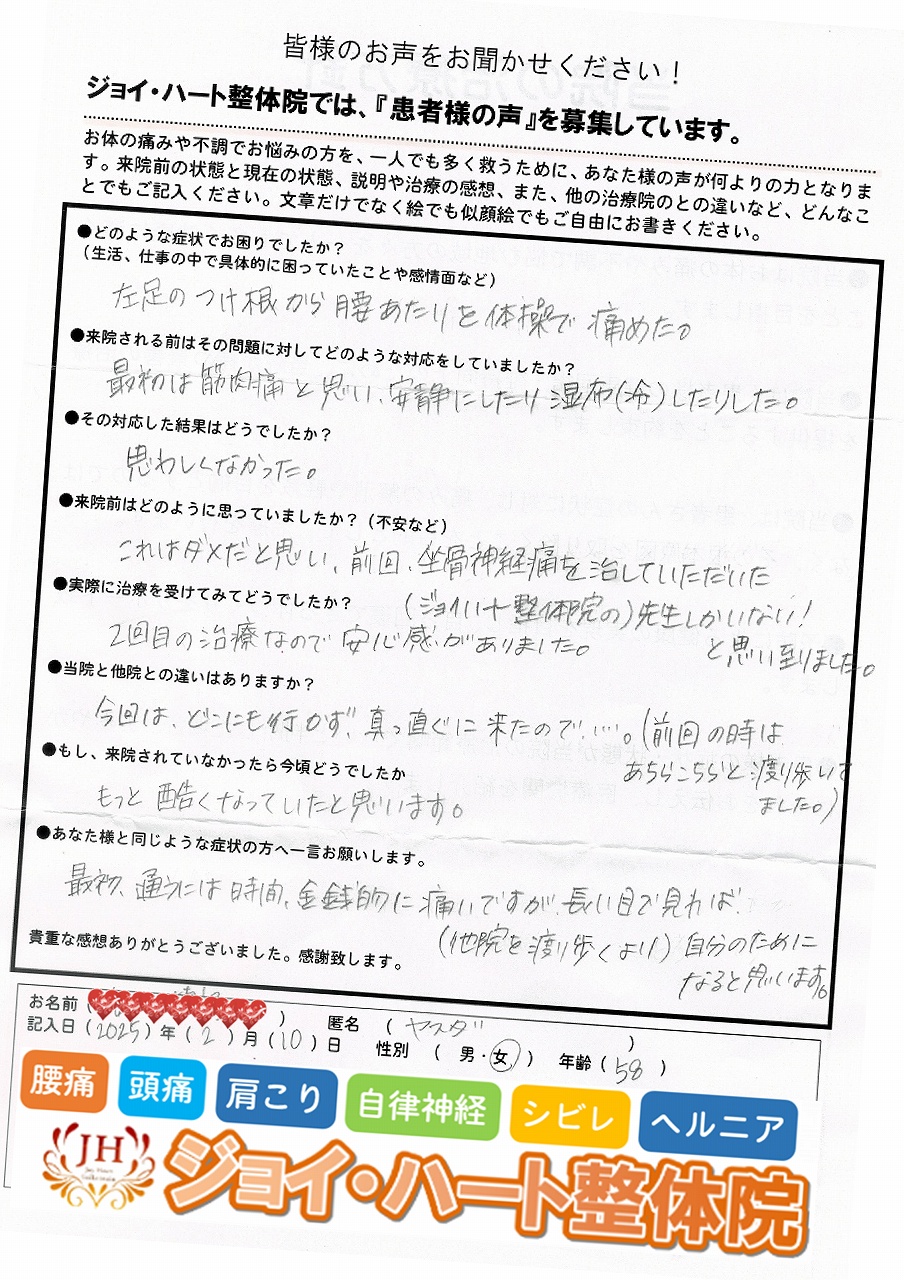 皆様のお声をお聞かせください！
ジョイ・ハート整体院では、『患者様の声』を募集しています。
お体の痛みや不調でお悩みの方を、一人でも多く救うために、あなた様の声が何よりの力となりま
す。来院前の状態と現在の状態、説明や治療の感想、また、他の治療院のとの違いなど、どんなこ
とでもご記入ください。文章だけでなく絵でも似顔絵でもご自由にお書きください。
●どのような症状でお困りでしたか？
（生活、仕事の中で具体的に困っていたことや感情面など）
左足のつけ根から腰あたりを体操で痛めた。
●来院される前はその問題に対してどのような対応をしていましたか？
最初は筋肉痛と思い、安静にしたり湿布(冷)したりした。
●その対応した結果はどうでしたか？
思わしくなかった。
●来院前はどのように思っていましたか？（不安など）
これはダメだと思い、前回、坐骨神経痛を治していただいた
(ジョイハート整体院の)先生しかいない！
と思い至りました。
●実際に治療を受けてみてどうでしたか？
2回目の治療なので安心感がありました。
●当院と他院との違いはありますか？
今回は、どこにも行かず、真っ直ぐに来たので……。(前回の時は
あちらこちらと渡り歩いて
ました。)
●もし、来院されていなかったら今頃どうでしたか
もっと酷くなっていたと思います。
●あなた様と同じような症状の方へ一言お願いします。
最初、通うには時間、金銭的に痛いですが、長い目で見れば、
(他院を渡り歩くより)自分のために
なると思います。
貴重な感想ありがとうございました。感謝致します。
お名前（ ） 匿名 （ヤスダ ）
記入日（2025）年（2）月（10）日 性別 （ 男・女 ） 年齢（58 ）
腰痛 頭痛 肩こり 自律神経 シビレ ヘルニア
JH
ジョイ・ハート整体院